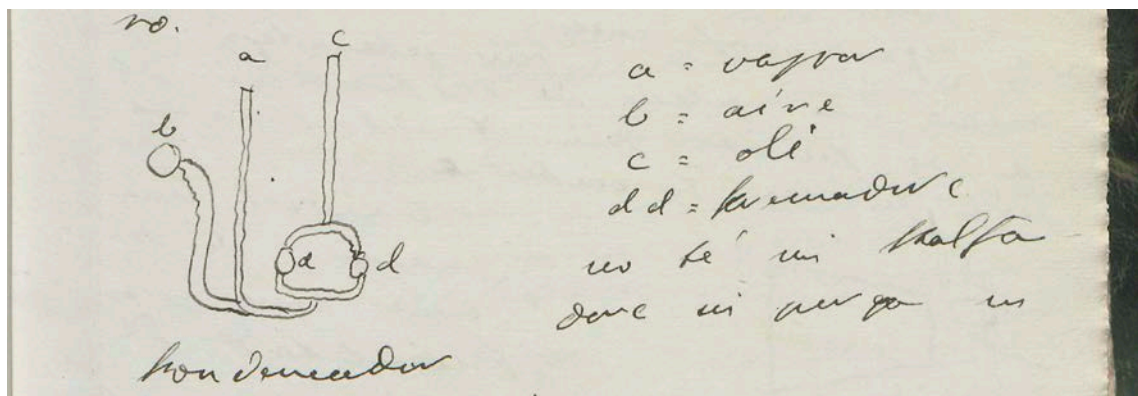 ro.
a
c
b
a = vappor
b = aire
c = oli
d d = kremadors
d
d
no té ni kalfa
donc ni purga ni
kondensador